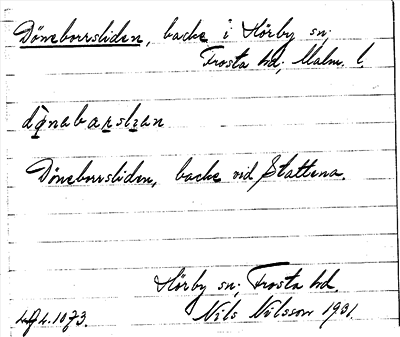 Döneborrsliden, backe i Hörby sn;
Frosta hd; Malm. l.
Döneborrsliden, backe vid Slattena.
Hörby sn; Frosta hd.
Nils Nilsson 1931.